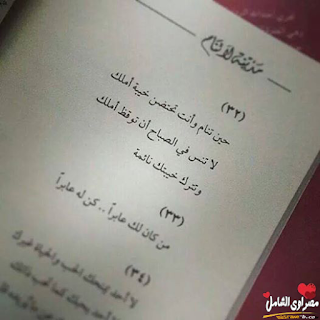 (٣٢)
حين تنام وأنت تحتضن خيبة أملك
لا تنس في الصباح أن توقظ أملك
وتترك خيبتك نائمة
(٣٣)
من كان لك عابراً .. كن له عابراً
(٣٤)
لا أحد يمنحك الحب والحياة غيرك
مصراوى الشامل